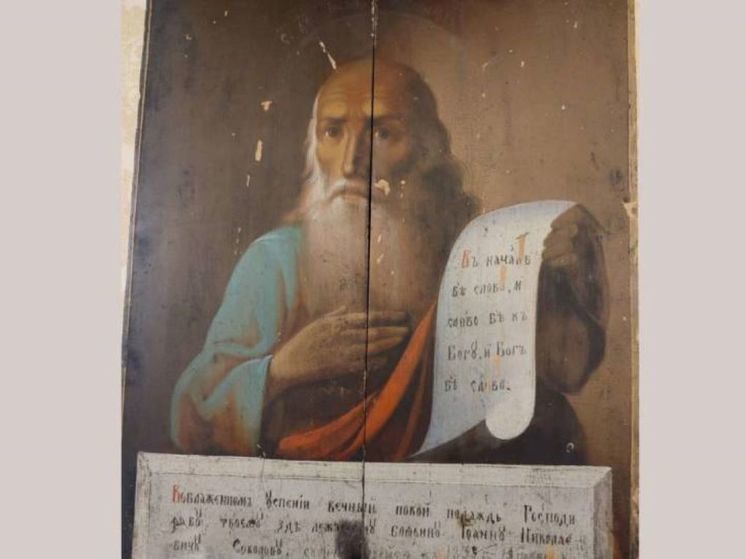 Въ началѣ
бѣ слово, и
слово бѣ къ
Богу, и Богъ
бѣ слово.
Во блаженномъ успенїи вѣчный покой подаждь Господи
рабу твоему здѣ лежащему Іоанну Николае
вичу Соколову